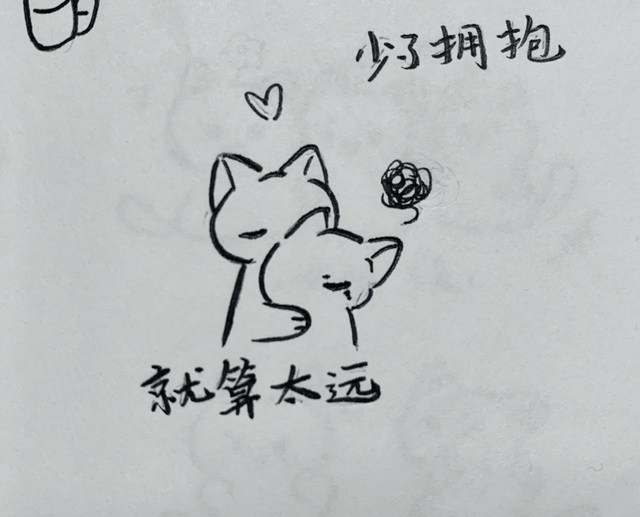 少了拥抱
就算太远